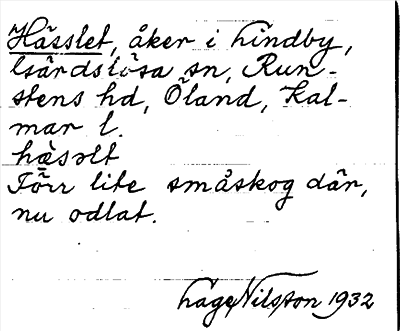 Hässlet, åker i Lindby,
Gärdslösa sn, Run-
stens hd, Öland, Kal-
mar l.
hä̀səlt
Förr lite småskog där,
nu odlat.
Lage Nilsson 1932